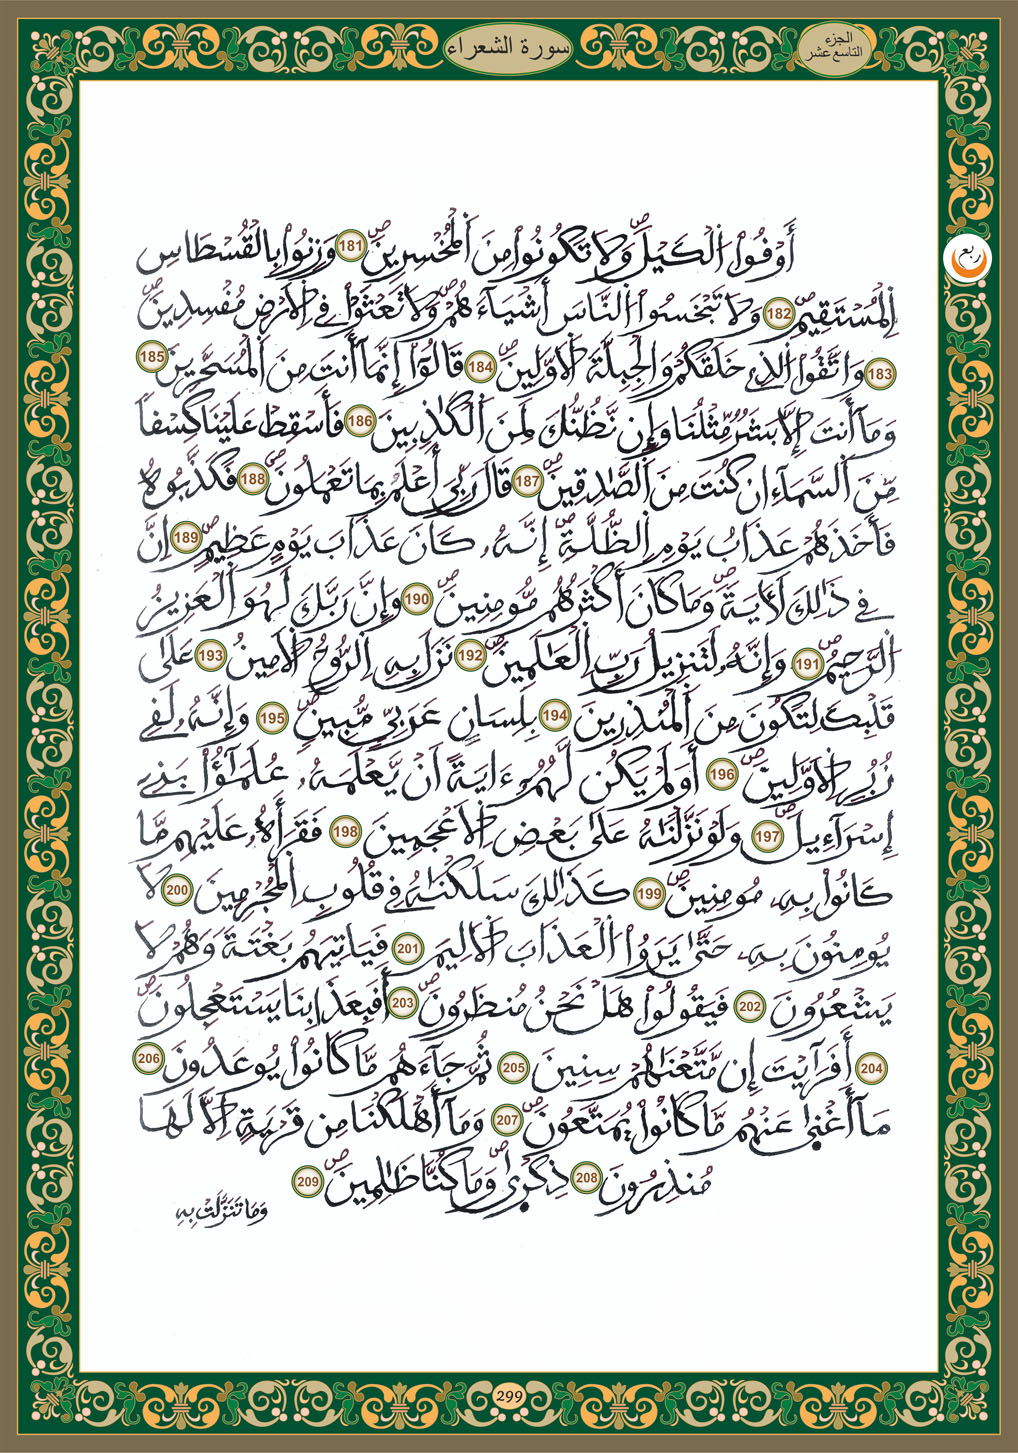 سورة الشعراء
الجزء
التاسع عشر
ربع
أَوْفُواْ اُلْكَيْلَ وَلَا تَكُونُواْ مِنَ اَلْمُخْسِرِينَ 181 وَزِنُواْ بِالْقُسْطَاسِ
اِلْمُسْتَقِيمِ 182 وَلَا تَبْخَسُواْ اُلنَّاسَ أَشْيَآءَهُمْ وَلَا تَعْثَوْاْ فِي اِلَارْضِ مُفْسِدِينَ
183 وَاتَّقُواْ اُلذِے خَلَقَكُمْ وَالْجِبِلَّةَ اَلَاوَّلِينَ 184 قَالُوٓاْ إِنَّمَآ أَنتَ مِنَ اَلْمُسَحَّرِينَ 185
وَمَآ أَنتَ إِلَّا بَشَرٌ مِّثْلُنَا وَإِن نَّظُنُّكَ لَمِنَ اَلْكَٰذِبِينَ 186 فَأَسْقِطْ عَلَيْنَا كِسْفاً
مِّنَ اَلسَّمَآءِ ان كُنتَ مِنَ اَلصَّٰدِقِينَ 187 قَالَ رَبِّيَ أَعْلَمُ بِمَا تَعْمَلُونَ 188 فَكَذَّبُوهُ
فَأَخَذَهُمْ عَذَابُ يَوْمِ اِلظُّلَّةِ إِنَّهُۥ كَانَ عَذَابَ يَوْمٍ عَظِيمٍ 189 اِنَّ
فِي ذَٰلِكَ لَأٓيَةً وَمَا كَانَ أَكْثَرُهُم مُّومِنِينَ 190 وَإِنَّ رَبَّكَ لَهُوَ اَلْعَزِيزُ
اُلرَّحِيمُ 191 وَإِنَّهُۥ لَتَنزِيلُ رَبِّ اِلْعَٰلَمِينَ 192 نَزَلَ بِهِ اِلرُّوحُ اُلَامِينُ 193 عَلَىٰ
قَلْبِكَ لِتَكُونَ مِنَ اَلْمُنذِرِينَ 194 بِلِسَانٍ عَرَبِيٍّ مُّبِينٍ 195 وَإِنَّهُۥ لَفِے
زُبُرِ اِلَاوَّلِينَ 196 أَوَلَمْ يَكُن لَّهُمُۥٓ ءَايَةً اَنْ يَّعْلَمَهُۥ عُلَمَٰٓؤُاْ بَنِےٓ
إِسْرَآءِيلَ 197 وَلَوْ نَزَّلْنَٰهُ عَلَىٰ بَعْضِ اِلَاعْجَمِينَ 198 فَقَرَأَهُۥ عَلَيْهِم مَّا
كَانُواْ بِهِۦ مُومِنِينَ 199 كَذَٰلِكَ سَلَكْنَٰهُ فِي قُلُوبِ اِلْمُجْرِمِينَ 200 لَا
يُومِنُونَ بِهِۦ حَتَّىٰ يَرَوُاْ اُلْعَذَابَ اَلَالِيمَ 201 فَيَاتِيَهُم بَغْتَةً وَهُمْ لَا
يَشْعُرُونَ 202 فَيَقُولُواْ هَلْ نَحْنُ مُنظَرُونَ 203 أَفَبِعَذَابِنَا يَسْتَعْجِلُونَ
204 أَفَرَٰٓيْتَ إِن مَّتَّعْنَٰهُمْ سِنِينَ 205 ثُمَّ جَآءَهُم مَّا كَانُواْ يُوعَدُونَ 206
مَآ أَغْنَىٰ عَنْهُم مَّا كَانُواْ يُمَتَّعُونَ 207 وَمَآ أَهْلَكْنَا مِن قَرْيَةٍ اِلَّا لَهَا
مُنذِرُونَ 208 ذِكْرَىٰ وَمَا كُنَّا ظَٰلِمِينَ 209
وَمَا تَنَزَّلَتْ بِهِ
299